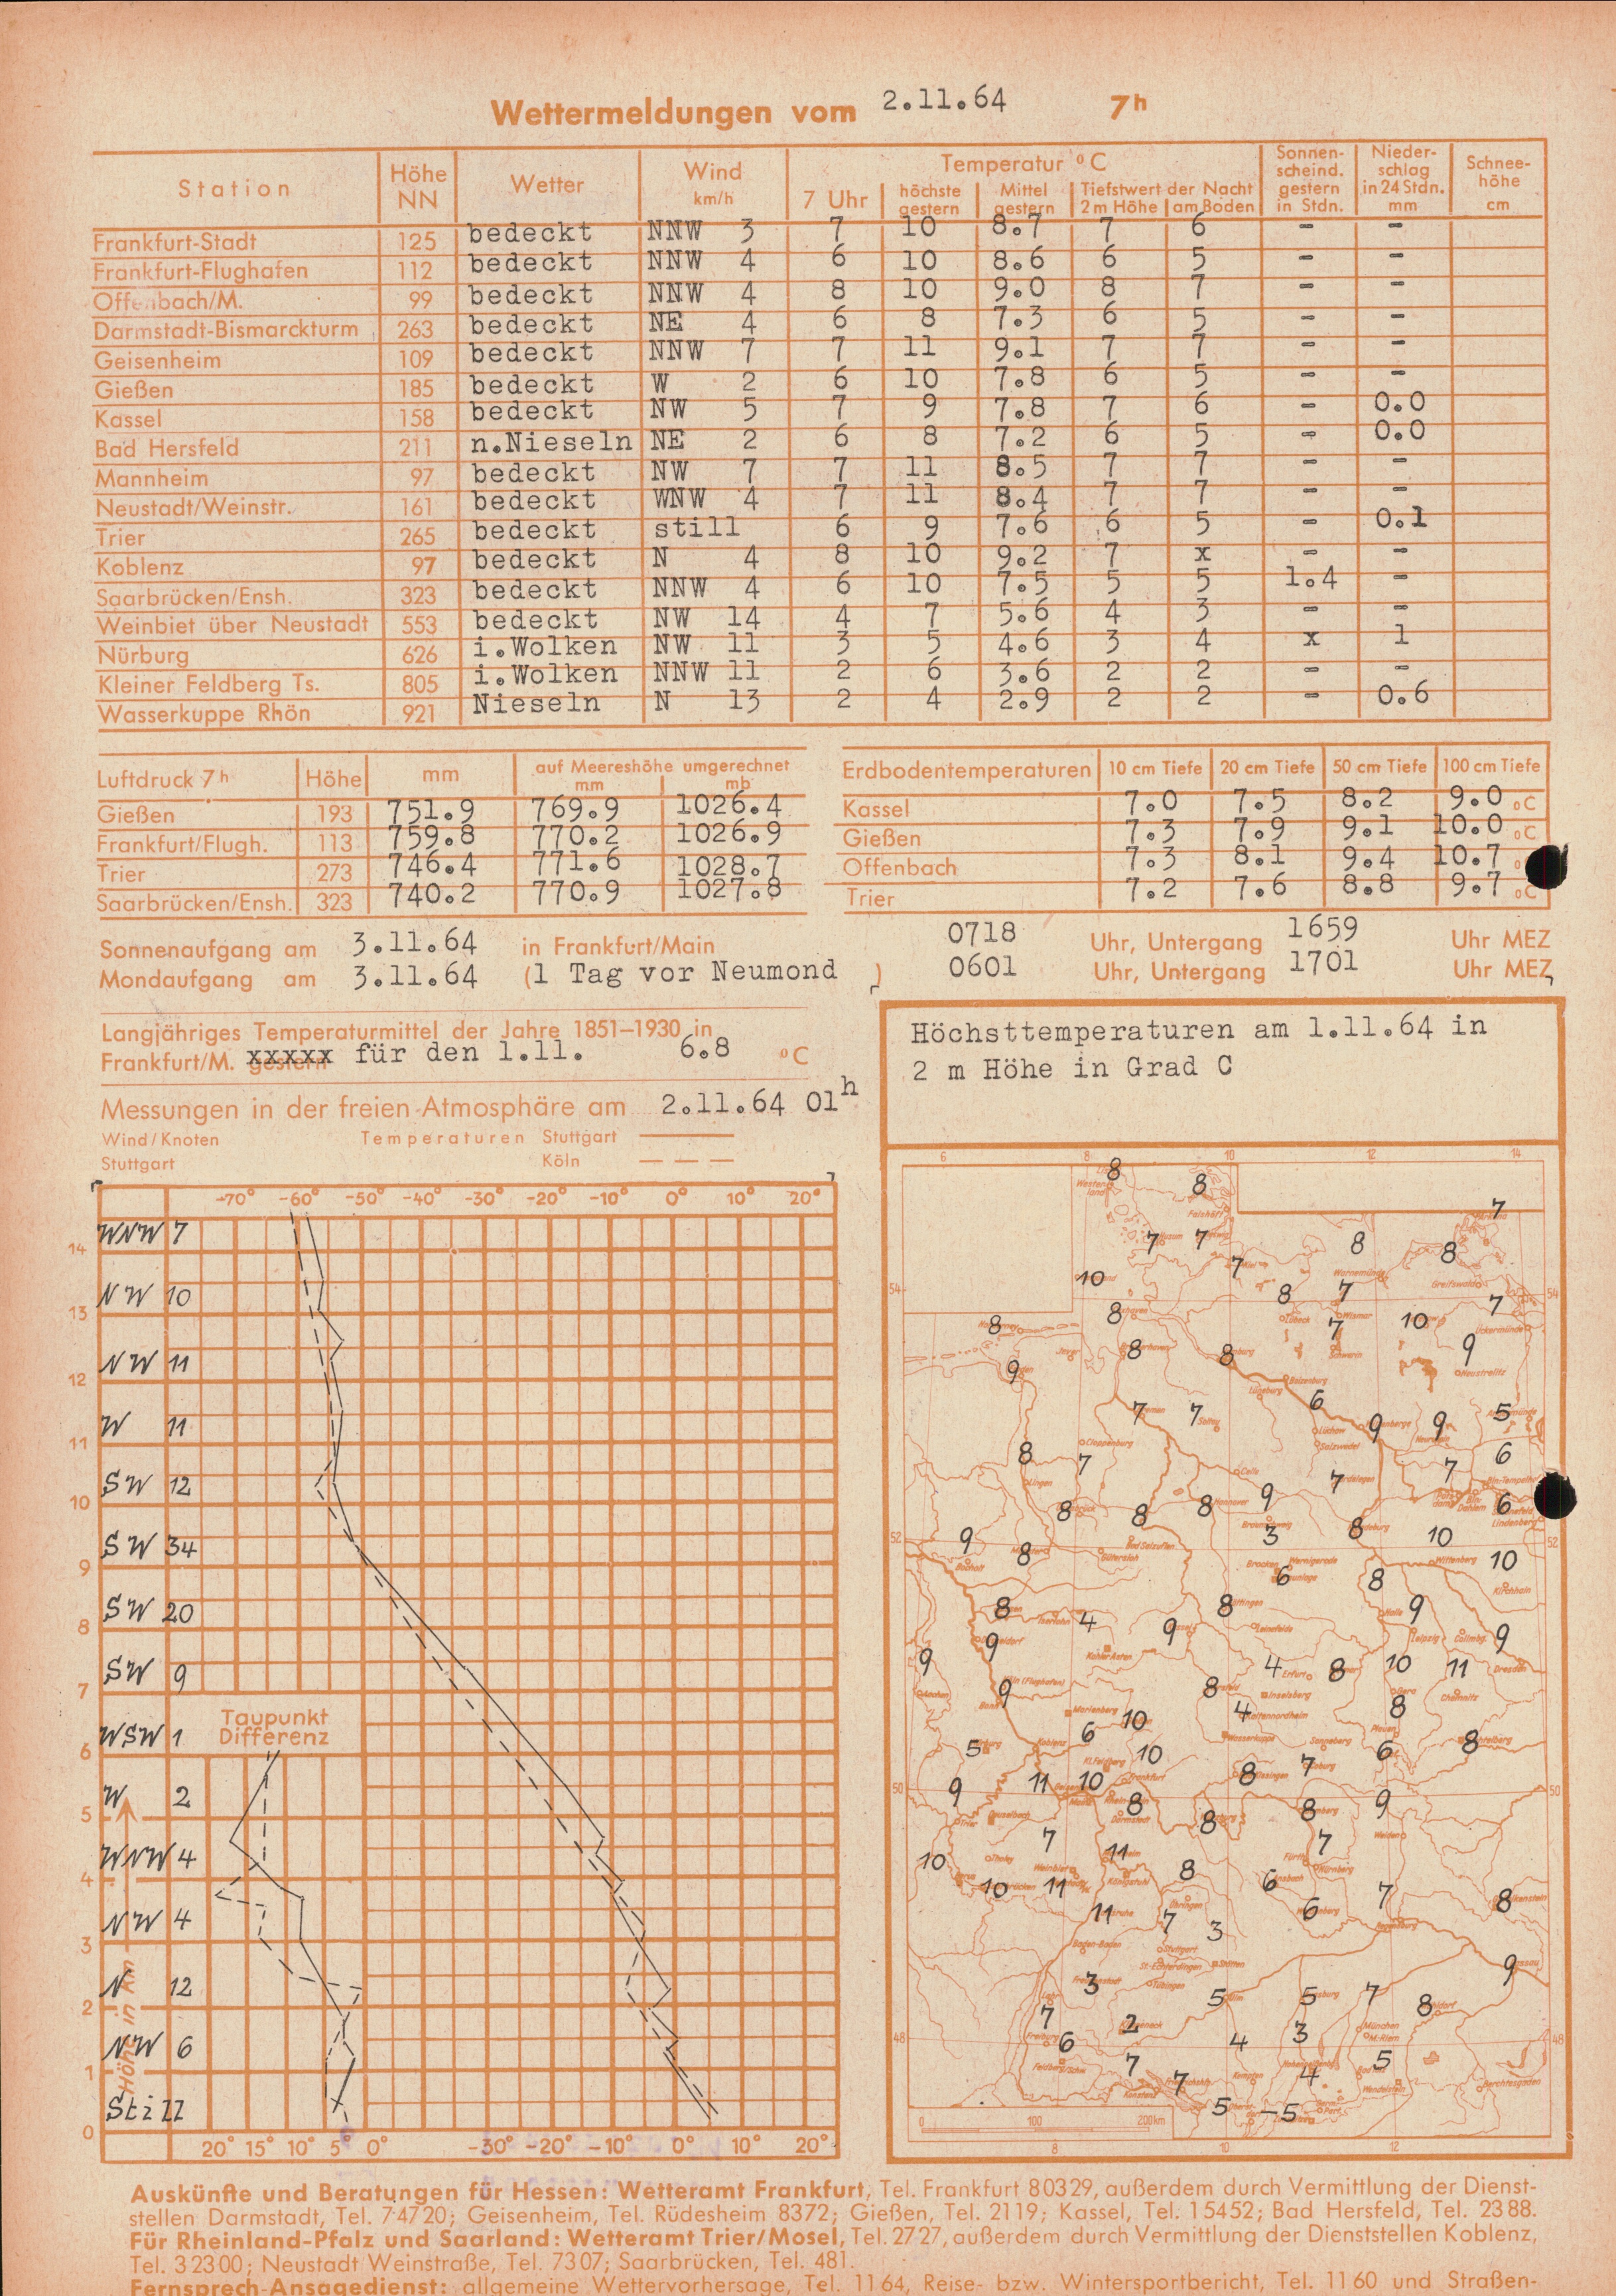 Wettermeldungen vom 2.11.64 7h
Station Höhe NN Wetter Wind km/h Temperatur °C Sonnenscheind. gestern in Stdn. Niederschlag in 24 Stdn. mm Schneehöhe cm
7 Uhr höchste gestern Mittel gestern Tiefstwert der Nacht 2 m Höhe am Boden
Frankfurt-Stadt 125 bedeckt NNW 3 7 10 8.7 7 6 - -
Frankfurt-Flughafen 112 bedeckt NNW 4 6 10 8.6 6 5 - -
Offenbach/M. 99 bedeckt NNW 4 8 10 9.0 8 7 - -
Darmstadt-Bismarckturm 263 bedeckt NE 4 6 8 7.3 6 5 - -
Geisenheim 109 bedeckt NNW 7 7 11 9.1 7 7 - -
Gießen 185 bedeckt W 2 6 10 7.8 6 5 - -
Kassel 158 bedeckt NW 5 7 9 7.8 7 6 - 0.0
Bad Hersfeld 211 n.Nieseln NE 2 6 8 7.2 6 5 - 0.0
Mannheim 97 bedeckt NW 7 7 11 8.5 7 7 - -
Neustadt/Weinstr. 161 bedeckt WNW 4 7 11 8.4 7 7 - -
Trier 265 bedeckt still 6 9 7.6 6 5 - 0.1
Koblenz 97 bedeckt N 4 8 10 9.2 7 x - -
Saarbrücken/Ensh. 323 bedeckt NNW 4 6 10 7.5 5 5 1.4 -
Weinbiet über Neustadt 553 bedeckt NW 14 4 7 5.6 4 3 - -
Nürburg 626 i.Wolken NW 11 3 5 4.6 3 4 x 1
Kleiner Feldberg Ts. 805 i.Wolken NNW 11 2 6 3.6 2 2 - -
Wasserkuppe Rhön 921 Nieseln N 13 2 4 2.9 2 2 - 0.6
Luftdruck 7h Höhe mm auf Meereshöhe umgerechnet mm mb
Gießen 193 751.9 769.9 1026.4
Frankfurt/Flugh. 113 759.8 770.2 1026.9
Trier 273 746.4 771.6 1028.7
Saarbrücken/Ensh. 323 740.2 770.9 1027.8
Erdbodentemperaturen 10 cm Tiefe 20 cm Tiefe 50 cm Tiefe 100 cm Tiefe
Kassel 7.0 7.5 8.2 9.0 °C
Gießen 7.3 7.9 9.1 10.0 °C
Offenbach 7.3 8.1 9.4 10.7
Trier 7.2 7.6 8.8 9.7 °C
Sonnenaufgang am 3.11.64 in Frankfurt/Main 0718 Uhr, Untergang 1659 Uhr MEZ
Mondaufgang am 3.11.64 (1 Tag vor Neumond ) 0601 Uhr, Untergang 1701 Uhr MEZ
Langjähriges Temperaturmittel der Jahre 1851–1930 in
Frankfurt/M. xxxxx für den 1.11. 6.8 °C
Messungen in der freien Atmosphäre am 2.11.64 01h
Wind/Knoten Temperaturen Stuttgart
Stuttgart Köln
-70° -60° -50° -40° -30° -20° -10° 0° 10° 20°
WNW 7
14
NW 10
13
NW 11
12
W 11
11
SW 12
10
SW 34
9
SW 20
8
SW 9
7
Taupunkt
Differenz
WSW 1
6
W 2
5
WNW 4
4
NW 4
3
N 12
2
NW 6
1
Still
0
Höhe in km
20° 15° 10° 5° 0° -30° -20° -10° 0° 10° 20°
Höchsttemperaturen am 1.11.64 in
2 m Höhe in Grad C
6 8 10 12 14
8 8 7
7 7 8 8
10 7 8 7 7
8 8 7 10 9
9 8 8
7 7 6 9 9 5
8 7 7 7 6
8 8 8 9 6
9 8 3 8 10 10
6 8
8 4 9 8 9 9
9 9 4 8 10 11
9 8 4 8
10 6 5 10 6 8
9 11 10 8 7
8 8 8 9
7 11 7
10 10 11 8 6 7 8
11 7 3 6
3 9
7 5 5 7 8
6 2 4 3
7 7 4 5
5 -5
0 100 200km
8 10 12
Auskünfte und Beratungen für Hessen: Wetteramt Frankfurt, Tel. Frankfurt 80329, außerdem durch Vermittlung der Dienst-
stellen Darmstadt, Tel. 74720; Geisenheim, Tel. Rüdesheim 8372; Gießen, Tel. 2119; Kassel, Tel. 15452; Bad Hersfeld, Tel. 2388.
Für Rheinland-Pfalz und Saarland: Wetteramt Trier/Mosel, Tel. 2727, außerdem durch Vermittlung der Dienststellen Koblenz,
Tel. 32300; Neustadt Weinstraße, Tel. 7307; Saarbrücken, Tel. 481.
Fernsprech-Ansagedienst: allgemeine Wettervorhersage, Tel. 1164, Reise- bzw. Wintersportbericht, Tel. 1160 und Straßen-